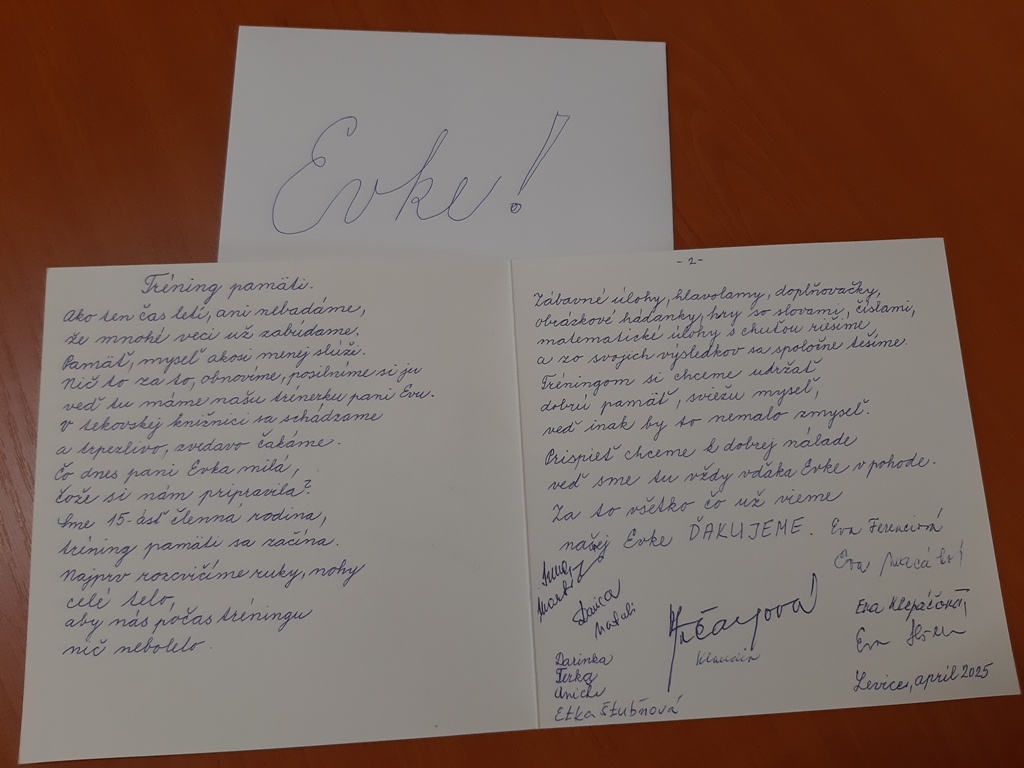 Evke!
Tréning pamäti.
Ako ten čas letí, ani nebadáme,
že mnohé veci už zabúdame.
Pamäť, myseľ akosi menej slúži.
Nič to za to, obnovíme, posilníme si ju
veď tu máme našu trénerku pani Evu.
V tekovskej knižnici sa schádzame
a trpezlivo, zvedavo čakáme.
Čo dnes pani Evka milá,
čože si nám pripravila?
Sme 15-ásť členná rodina,
tréning pamäti sa začína.
Najprv rozcvičíme ruky, nohy
celé telo,
aby nás počas tréningu
nič nebolelo.
- 2 -
Zábavné úlohy, hlavolamy, doplňovačky,
obrázkové hádanky, hry so slovami, číslami,
matematické úlohy s chuťou riešime
a zo svojich výsledkov sa spoločne tešíme.
Tréningom si chceme udržať
dobrú pamäť, sviežu myseľ,
veď inak by to nemalo zmysel.
Prispieť chceme k dobrej nálade
veď sme tu vždy vďaka Evke v pohode.
Za to všetko čo už vieme
našej Evke ĎAKUJEME.
Eva Ferenciová
Eva
Danica
Klaudia
Eva Klepáčová,
Eva
Darinka
Terka
Etka Štubňová
Levice, apríl 2025